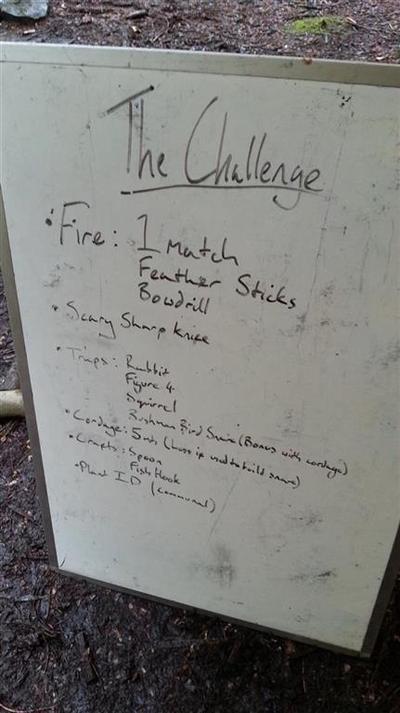 The Challenge
• Fire: 1 Match
Feather Sticks
Bowdrill
• Scary Sharp knife
• Traps: Rabbit
Figure 4
Squirrel
Bushman Bird Snare (Bonus with cordage)
• Cordage: 5 mts (Less if used to build snare)
• Crafts: Spoon
Fish Hook
• Plant I.D (communal)